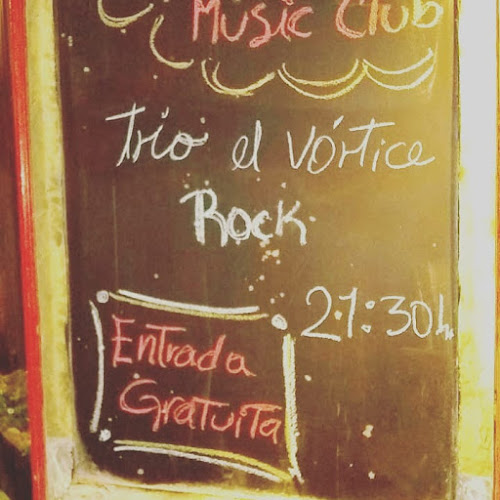 Music Club
Trío el Vórtice
Rock
21:30h.
Entrada
Gratuita